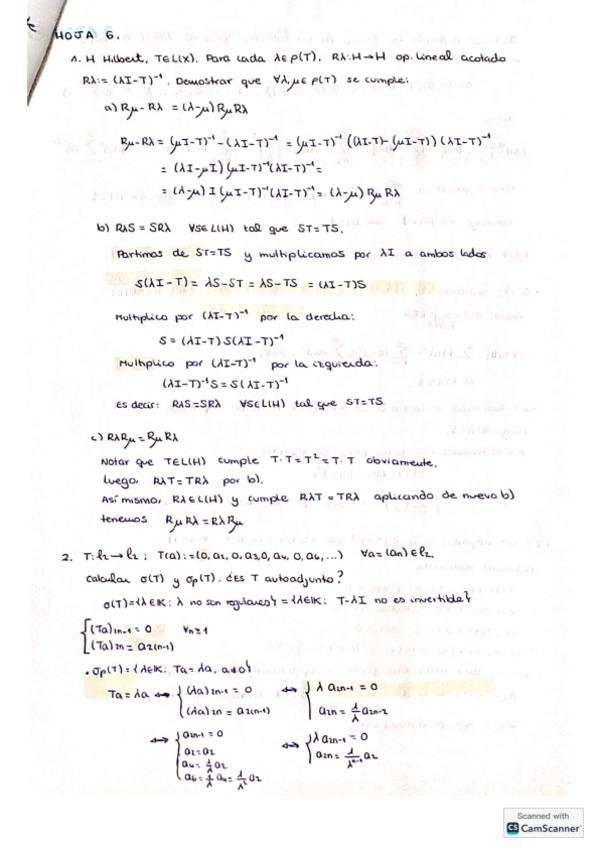 HOJA 6.
1. H Hilbert, T∈L(X). Para cada λ∈ρ(T), Rλ: H→H op. lineal acotado
Rλ := (λI-T)⁻¹. Demostrar que ∀λ,μ∈ρ(T) se cumple:
a) Rμ - Rλ = (λ-μ) Rμ Rλ
Rμ-Rλ = (μI-T)⁻¹ - (λI-T)⁻¹ = (μI-T)⁻¹ ((λI-T)-(μI-T)) (λI-T)⁻¹
= (λI-μI)(μI-T)⁻¹(λI-T)⁻¹ =
= (λ-μ) I (μI-T)⁻¹(λI-T)⁻¹ = (λ-μ) Rμ Rλ
b) RλS = SRλ ∀S∈L(H) tal que ST=TS.
Partimos de ST=TS y multiplicamos por λI a ambos lados
S(λI-T) = λS-ST = λS-TS = (λI-T)S
Multiplico por (λI-T)⁻¹ por la derecha:
S = (λI-T) S(λI-T)⁻¹
Multiplico por (λI-T)⁻¹ por la izquierda:
(λI-T)⁻¹S = S(λI-T)⁻¹
es decir: RλS=SRλ ∀S∈L(H) tal que ST=TS.
c) RλRμ = RμRλ
Notar que T∈L(H) cumple T·T=T²=T·T obviamente,
luego, RλT=TRλ por b).
Así mismo, Rλ∈L(H) y cumple RλT=TRλ aplicando de nuevo b)
tenemos RμRλ=RλRμ
2. T: ℓ₂→ℓ₂ ; T(a):=(0, a₂, 0, a₃, 0, a₄, 0, a₆, ...) ∀a=(an)∈ℓ₂.
calcular σ(T) y σp(T). ¿Es T autoadjunto?
σ(T)={λ∈K: λ no son regulares}={λ∈K: T-λI no es invertible}
{(Ta)2n-1 = 0 ∀n≥1
{(Ta)2n = a2(n-1)
· σp(T)={λ∈K: Ta=λa, a≠0}
Ta=λa ⟺ {(λa)2n-1 = 0 ⟺ {λ a2n-1 = 0
{(λa)2n = a2(n-1) {a2n = 1/λ a2n-2
⟺ {a2n-1 = 0 ⟺ {λ a2n-1 = 0
{a₂=a₂ {a2n = 1/λⁿ⁻¹ a₂
{a₄ = 1/λ a₂
{a₆ = 1/λ a₄ = 1/λ² a₂
Scanned with
CS CamScanner